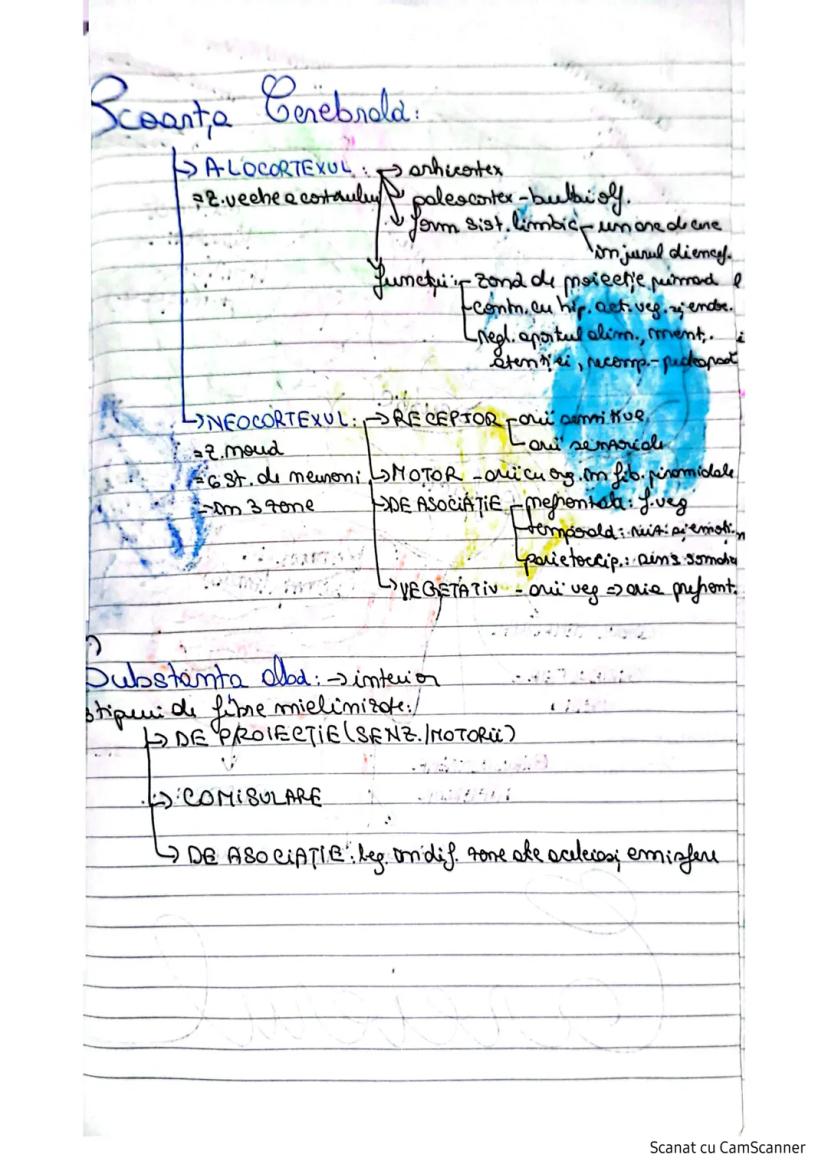 Scoarța Cerebrală:
→ ALOCORTEXUL: → arhicortex
= z. veche a cortexului → paleocortex - bulbii olf.
→ form sist. limbic - un are de cire
în jurul diencef.
funcții: - zonă de proiecție primară
- contr. cu hip. act. veg. și endr.
- regl. aportul alim., ment.
atenției, recomp. - pedeapsă
→ NEOCORTEXUL: → RECEPTOR - arii senzitive
- arii senzoriale
= z. nouă
= 6 st. de neuroni → MOTOR - arii cu org. în fib. piramidale
→ în 3 zone → DE ASOCIAȚIE - prefrontală: f. veg
- temporală: și emoții
- parietoccip.: sins somato
→ VEGETATIV - arii veg => aria prefront.
Substanța albă: → interior
3 tipuri de fibre mielinizate:
→ DE PROIECȚIE (SENZ./MOTORII)
→ COMISULARE
→ DE ASOCIAȚIE: leg. între dif. zone ale aceleiași emisfere
Scanat cu CamScanner